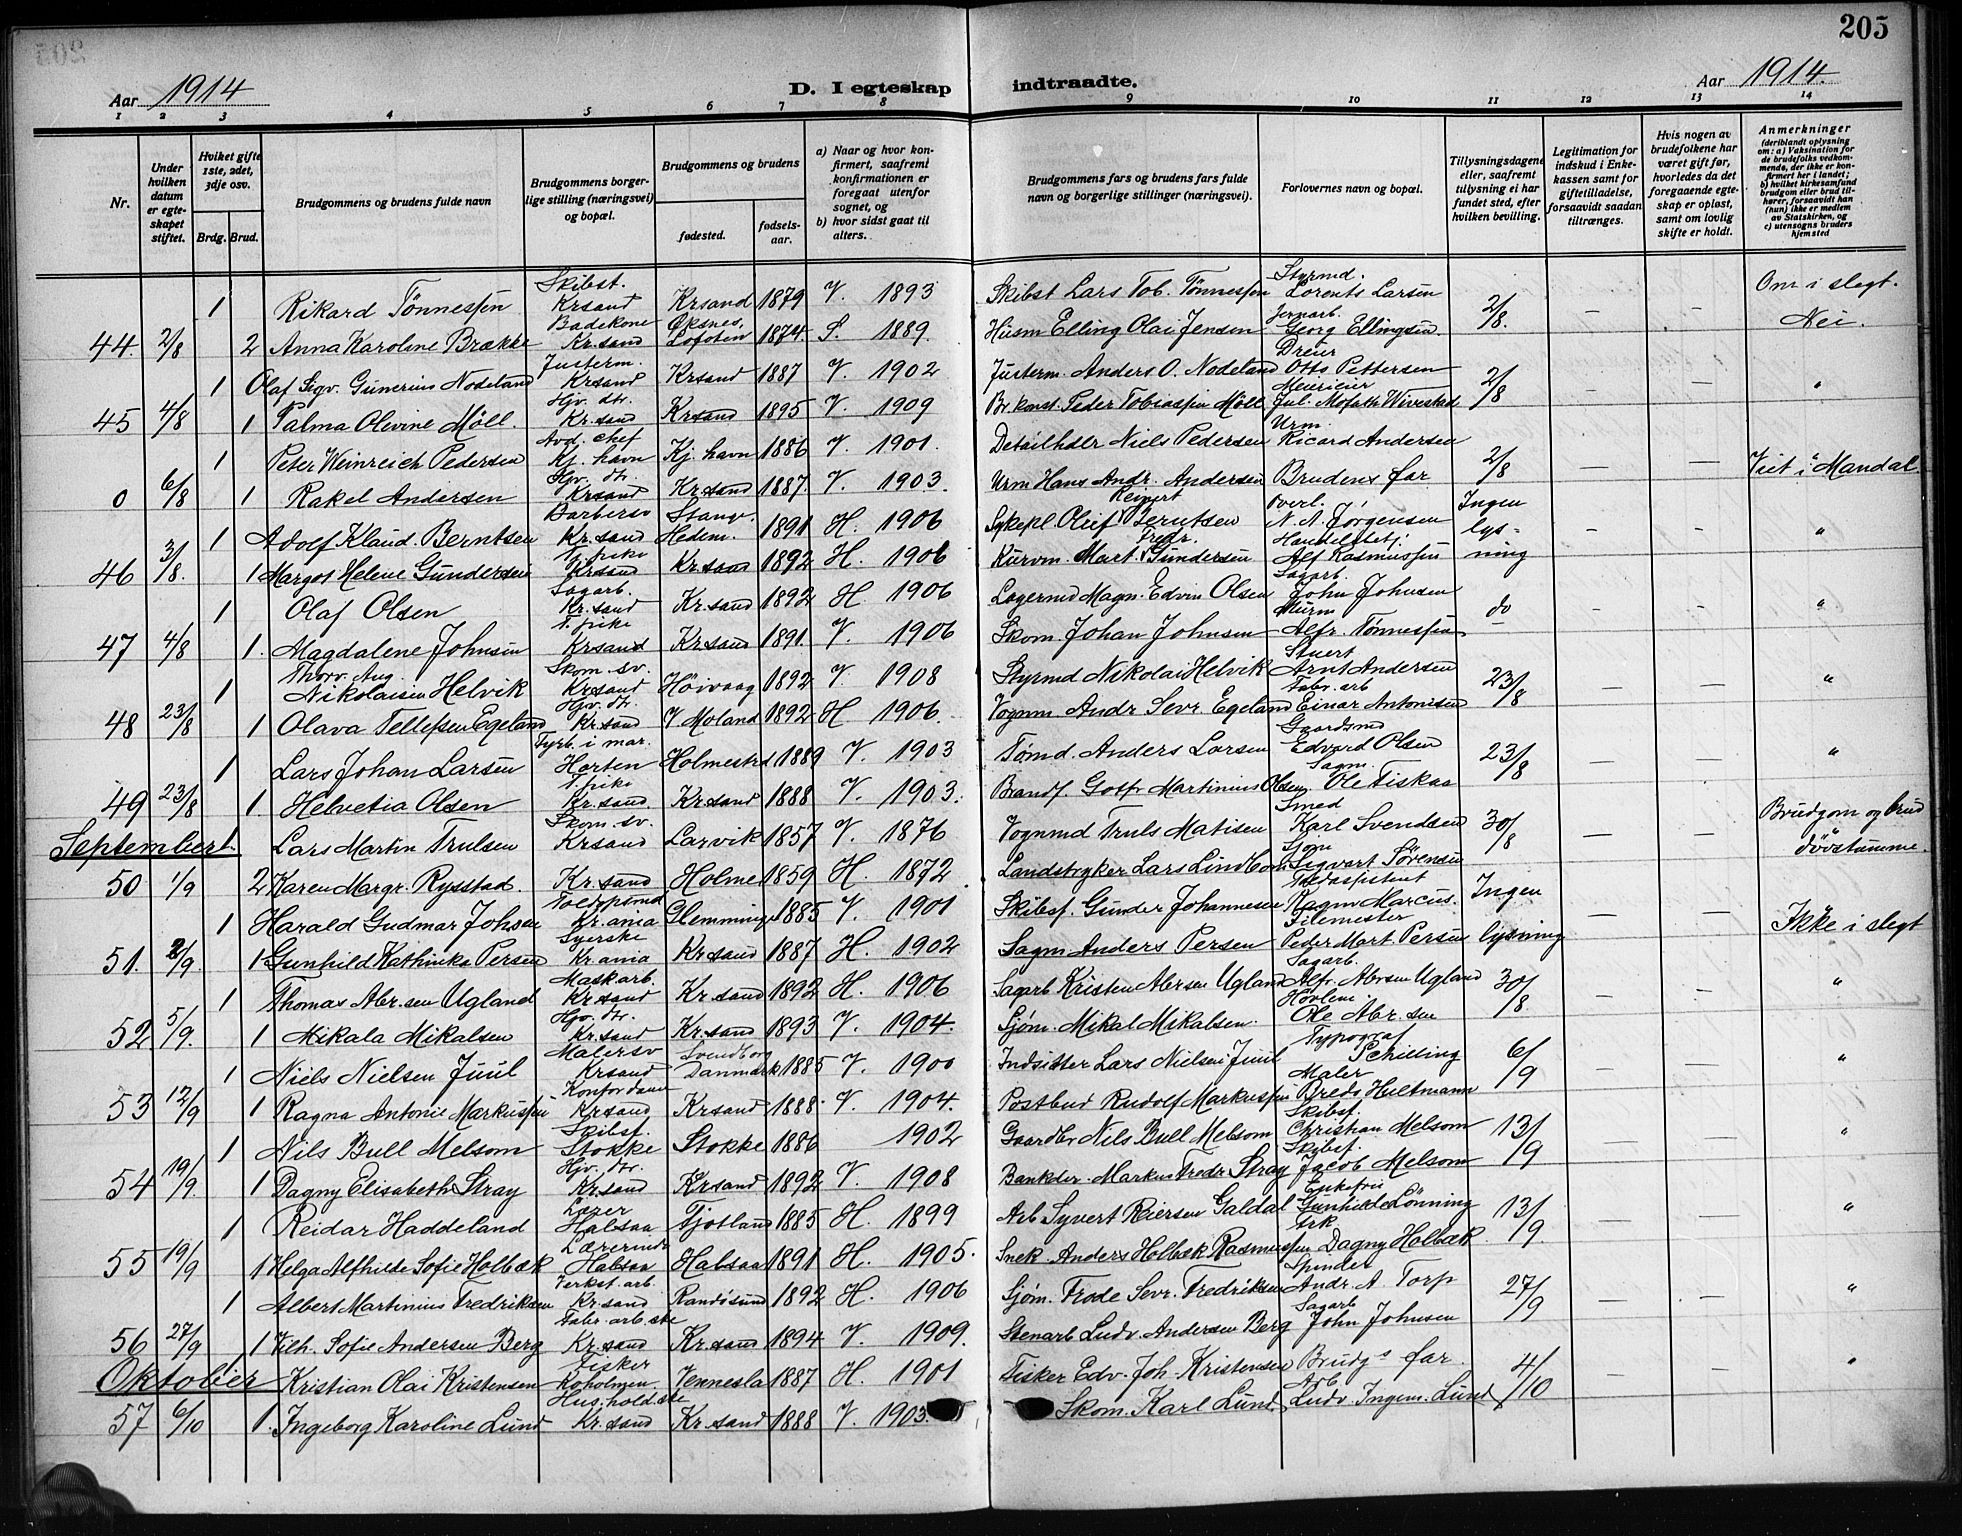 205
Aar 1914
D. I egteskap indtraadte.
Aar 1914.
1 2 3 4 5 6 7 8 9 10 11 12 13 14
Nr.
Under hvilken datum er egteskapet stiftet.
Hviket gifte 1ste, 2det, 3dje osv.
Brdg. Brud.
Brudgommens og brudens fulde navn
Brudgommens borgerlige stilling (næringsvei) og bopæl.
Brudgommens og brudens
fødested.
fødselsaar.
a) Naar og hvor konfirmert, saafremt konfirmationen er foregaat utenfor sognet, og
b) hvor sidst gaat til alters.
Brudgommens fars og brudens fars fulde navn og borgerlige stillinger (næringsvei).
Forlovernes navn og bopæl.
Tillysningsdagene eller, saafremt tillysning ei har fundet sted, efter hvilken bevilling.
Legitimation for indskud i Enkekassen samt for giftetilladelse, forsaavidt saadan tiltrænges.
Hvis nogen av brudefolkene har været gift før, hvorledes da det foregaaende egteskap er opløst, samt om lovlig skifte er holdt.
Anmerkninger (deriblandt oplysning om: a) Vaksination for de brudefolks vedkommende, der ikke er konfirmert her i landet; b) hvilket kirkesamfund brudgom eller brud tilhører, forsaavidt han (hun) ikke er medlem av Statskirken, og c) utensogns bruders hjemsted
1 Rikard Tönnessen Skibst. Krsand Krsand 1879 V. 1893 Skibst Lars Tob. Tönnessen Styrmd. Lorents Larsen 2/8. – – Om i slegt.
44. 2/8 2 Anna Karoline Brække Badekone Kr.sand Øksnes, Lofoten 1874. S. 1889. Husm Elling Olai Jensen Jernarb. Georg Ellingsen. Nei.
1 Olaf Sigv. Gunerius Nodeland Justerm. Krsand Krsand 1887 V. 1902 Justerm. Anders O. Nodeland Dreier Otto Pettersen 2/8 – – "
45 4/8 1 Palma Olivine Möll. Hjv. dtr. Kr.sand Krsand 1895 V. 1909 Br.konst. Peder Tobiassen Möll Meierier Jul. Mofath Wivestad
1 Peter Weinreich Pedersen Avd. chef Kj. havn Kj. havn 1886 V. 1901. Detailhdlr Niels Pedersen Urm. Ricard Andersen 2/8 – – Viet i Mandal.
0 6/8 1 Rakel Andersen Hjv. dtr. Krsand Kr.sand 1887. V. 1903. Urm Hans Andr. Andersen Brudens far
1 Adolf Klaud. Berntsen Barbersv Kr.sand Stange. Hedem. 1891 H. 1906 Sykepl. Oluf Reinert Berntsen Overl. N. A. Jørgensen Ingen lysning – – "
46 3/8. 1 Margot Helene Gundersen T. pike Krsand Kr.sand 1892 H. 1906 Kurvm. Mart. Fredr. Gundersen Handelsbetj. Alf Rasmussen
1 Olaf Olsen Sagarb. Kr.sand Kr.sand 1892 H 1906 Lagermd Magn. Edvin Olsen Sagarb. John Johnsen do – – "
47 4/8 1. Magdalene Johnsen T. pike Krsand Kr.sand 1891. V. 1906 Skom. Johan Johnsen Murm Alfr. Tönnessen
1 Thorv. Aug. Nikolaisen Helvik Skom. sv. Krsand Höivaag 1892 V. 1908 Styrmd Nikolai Helvik Stuert Arnt Andersen 23/8 – – "
48 23/8 1 Olava Tellefsen Egeland Hjv. dtr. Kr.sand V Moland 1892 H 1906. Vognm. Andr Sevr. Egeland Fabr. arb Einar Antonisen
1 Lars Johan Larsen Fyrb. i mar. Horten Holmestrd 1889 V. 1903 Tömd. Anders Larsen Gaardsmd Edvard Olsen 23/8 – – "
49 23/8 1. Helvetia Olsen T. pike Kr.sand. Kr.sand 1888 V. 1903. Brandf. Gotfr Martinius Olsen Sagm. Ole Fiskaa
September 1. Lars Martin Trulsen Skom. sv. Krsand Larvik 1857 V. 1876 Vognmd Truls Matisen Smed Karl Svendsen 30/8 – – Brudgom og brud dövstumme.
50 1/9 2 Karen Margr. Rysstad. Kr.sand Holme 1859 H. 1872. Landstryker Lars Lindbom Sjøm Sigvart Sörensen
1 Harald Gudmar Johsen Toldopsmd Kr.ania Glemminge 1885 V. 1901 Skibsf. Gunder Johannesen Toldassistent Ragnv Marcus. Ingen lysning – – Ikke i slegt
51. 2/9. 1 Gunhild Kathinka Persen Syerske Kr.ania Kr.sand 1887 H. 1902 Sagm Anders Persen Filemester Peder Mart. Persen
1 Thomas Abr.sen Ugland Maskarb. Kr.sand Kr.sand 1892 H. 1906 Sagarb Kristen Abrsen Ugland Sagarb. Alfr. Abrsen Ugland 30/8. – – "
52 5/9. 1 Mikala Mikalsen Hjv. dtr. Kr.sand Kr.sand 1893 V. 1904. Sjöm. Mikal Mikalsen. Hövleri Ole Abr.sen
1 Niels Nielsen Juul Malersv Krsand Svendborg Danmark 1885 V. 1900 Indsitter Lars Nielsen Juul Typograf Schilling 6/9 – – "
53 12/9 1 Ragna Antonie Markussen Konf.ordame Krsand Krsand 1888. V. 1904. Postbud Rudolf Markussen Maler Breds Hultmann
1 Nils Bull Melsom Skibsf. Stokke Stokke 1886 1902 Gaardbr Nils Bull Melsom Skibsf. Christian Melsom 13/9 – – "
54 19/9 1 Dagny Elisabeth Stray Hjv. dtr. Kr.sand Krsand 1892 V. 1908 Bankdir. Markus Fredr Stray Skibsf. Jacob Melsom
1 Reidar Haddeland Lærer Halsaa Fjotland 1885 H. 1899 Arb Syvert Reiersen Galdal Enkefru Gunhilde Lönning 13/9. – – "
55 19/9 1 Helga Alfhilde Sofie Holbæk Lærerinde Halsaa Halsaa 1891 H. 1905. Snek. Anders Holbæk Rasmussen Frk Dagny Holbæk
1 Albert Martinius Fredriksen Verkst. arb. Kr.sand Randøsund 1892 H. 1906 Sjöm. Frode Sevr. Fredriksen Spinder Andr. A. Torp 27/9 – – "
56 27/9 1 Vilh. Sofie Andersen Berg Fabr. arb.ske Kr.sand Kr.sand 1894 V. 1909. Stenarb Ludv. Andersen Berg Sagarb John Johnsen
Oktober Kristian Olai Kristensen Fisker Roholmen Vennesla 1887 H. 1901 Fisker Edv. Joh. Kristensen Brudgs far. 4/10 – – "
57 6/10 1. Ingeborg Karoline Lund Hushold.ske Kr.sand Kr.sand 1888 V. 1903. Skom. Karl Lund Arb. Ludv Ingem. Lund